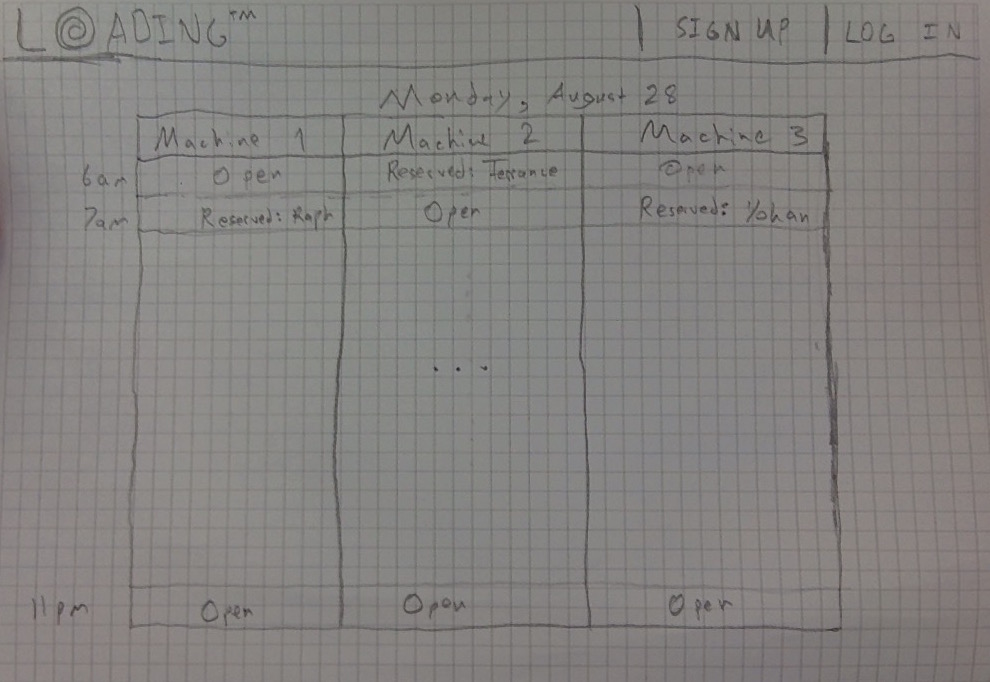 L@ADING™ | SIGN UP | LOG IN
Monday, August 28
Machine 1 Machine 2 Machine 3
6am Open Reserved: Terrance Open
7am Reserved: Raph Open Reserved: Yohan
...
11pm Open Open Open